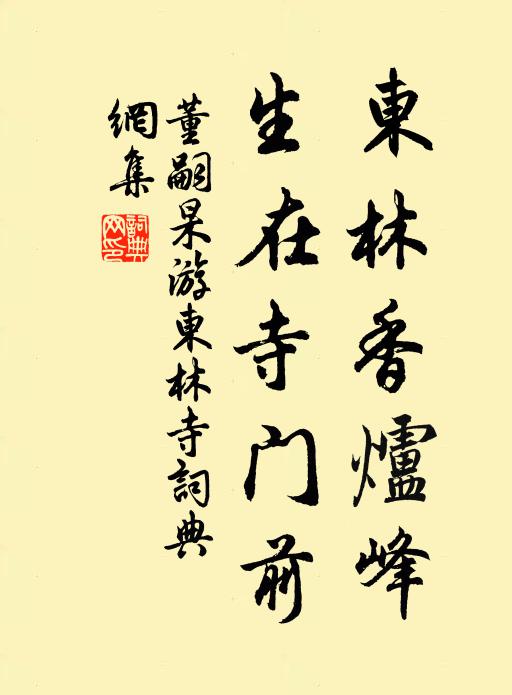 東林香爐峰
生在寺门前
董嗣杲游東林寺詞典
網集
詞典
网印